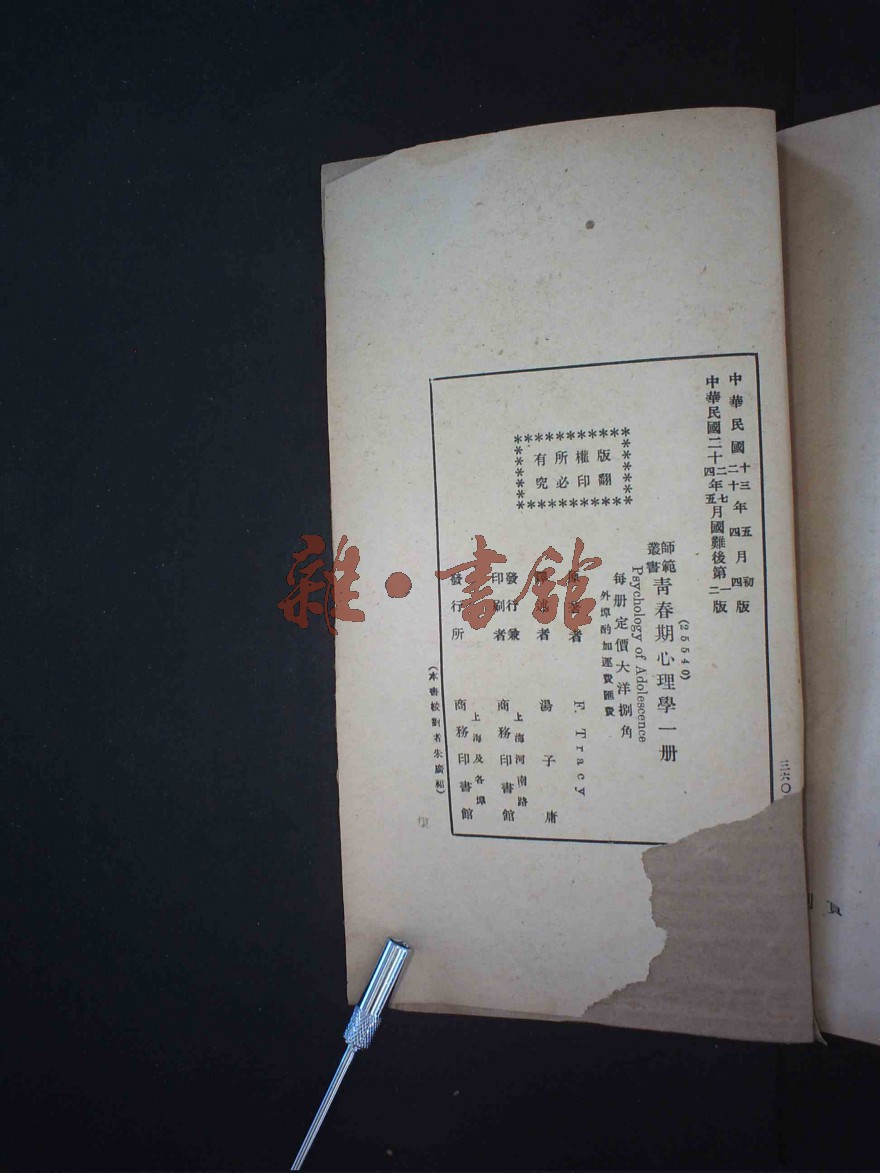 中華民國十三年五月初版
二十四四
中華民國二十二年七月國難後第一版
四五二
三六〇
(25540)
師範叢書 青春期心理學一册
Psychology of Adolescence
每册定價大洋捌角
外埠酌加運費匯費
版權所有
翻印必究
原著者 F. Tracy
述者 湯子庸
發行兼印刷者 上海河南路 商務印書館
發行所 上海及各埠 商務印書館
(本書校對者朱廣福)
雜·書館